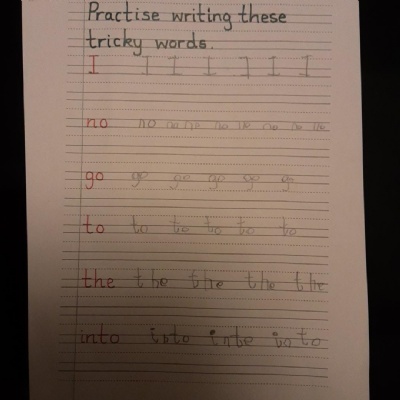 Practise writing these
tricky words.
I I I I I I I
no no no no no no no no
go go go go go go
to to to to to to
the the the the the
into into inte into